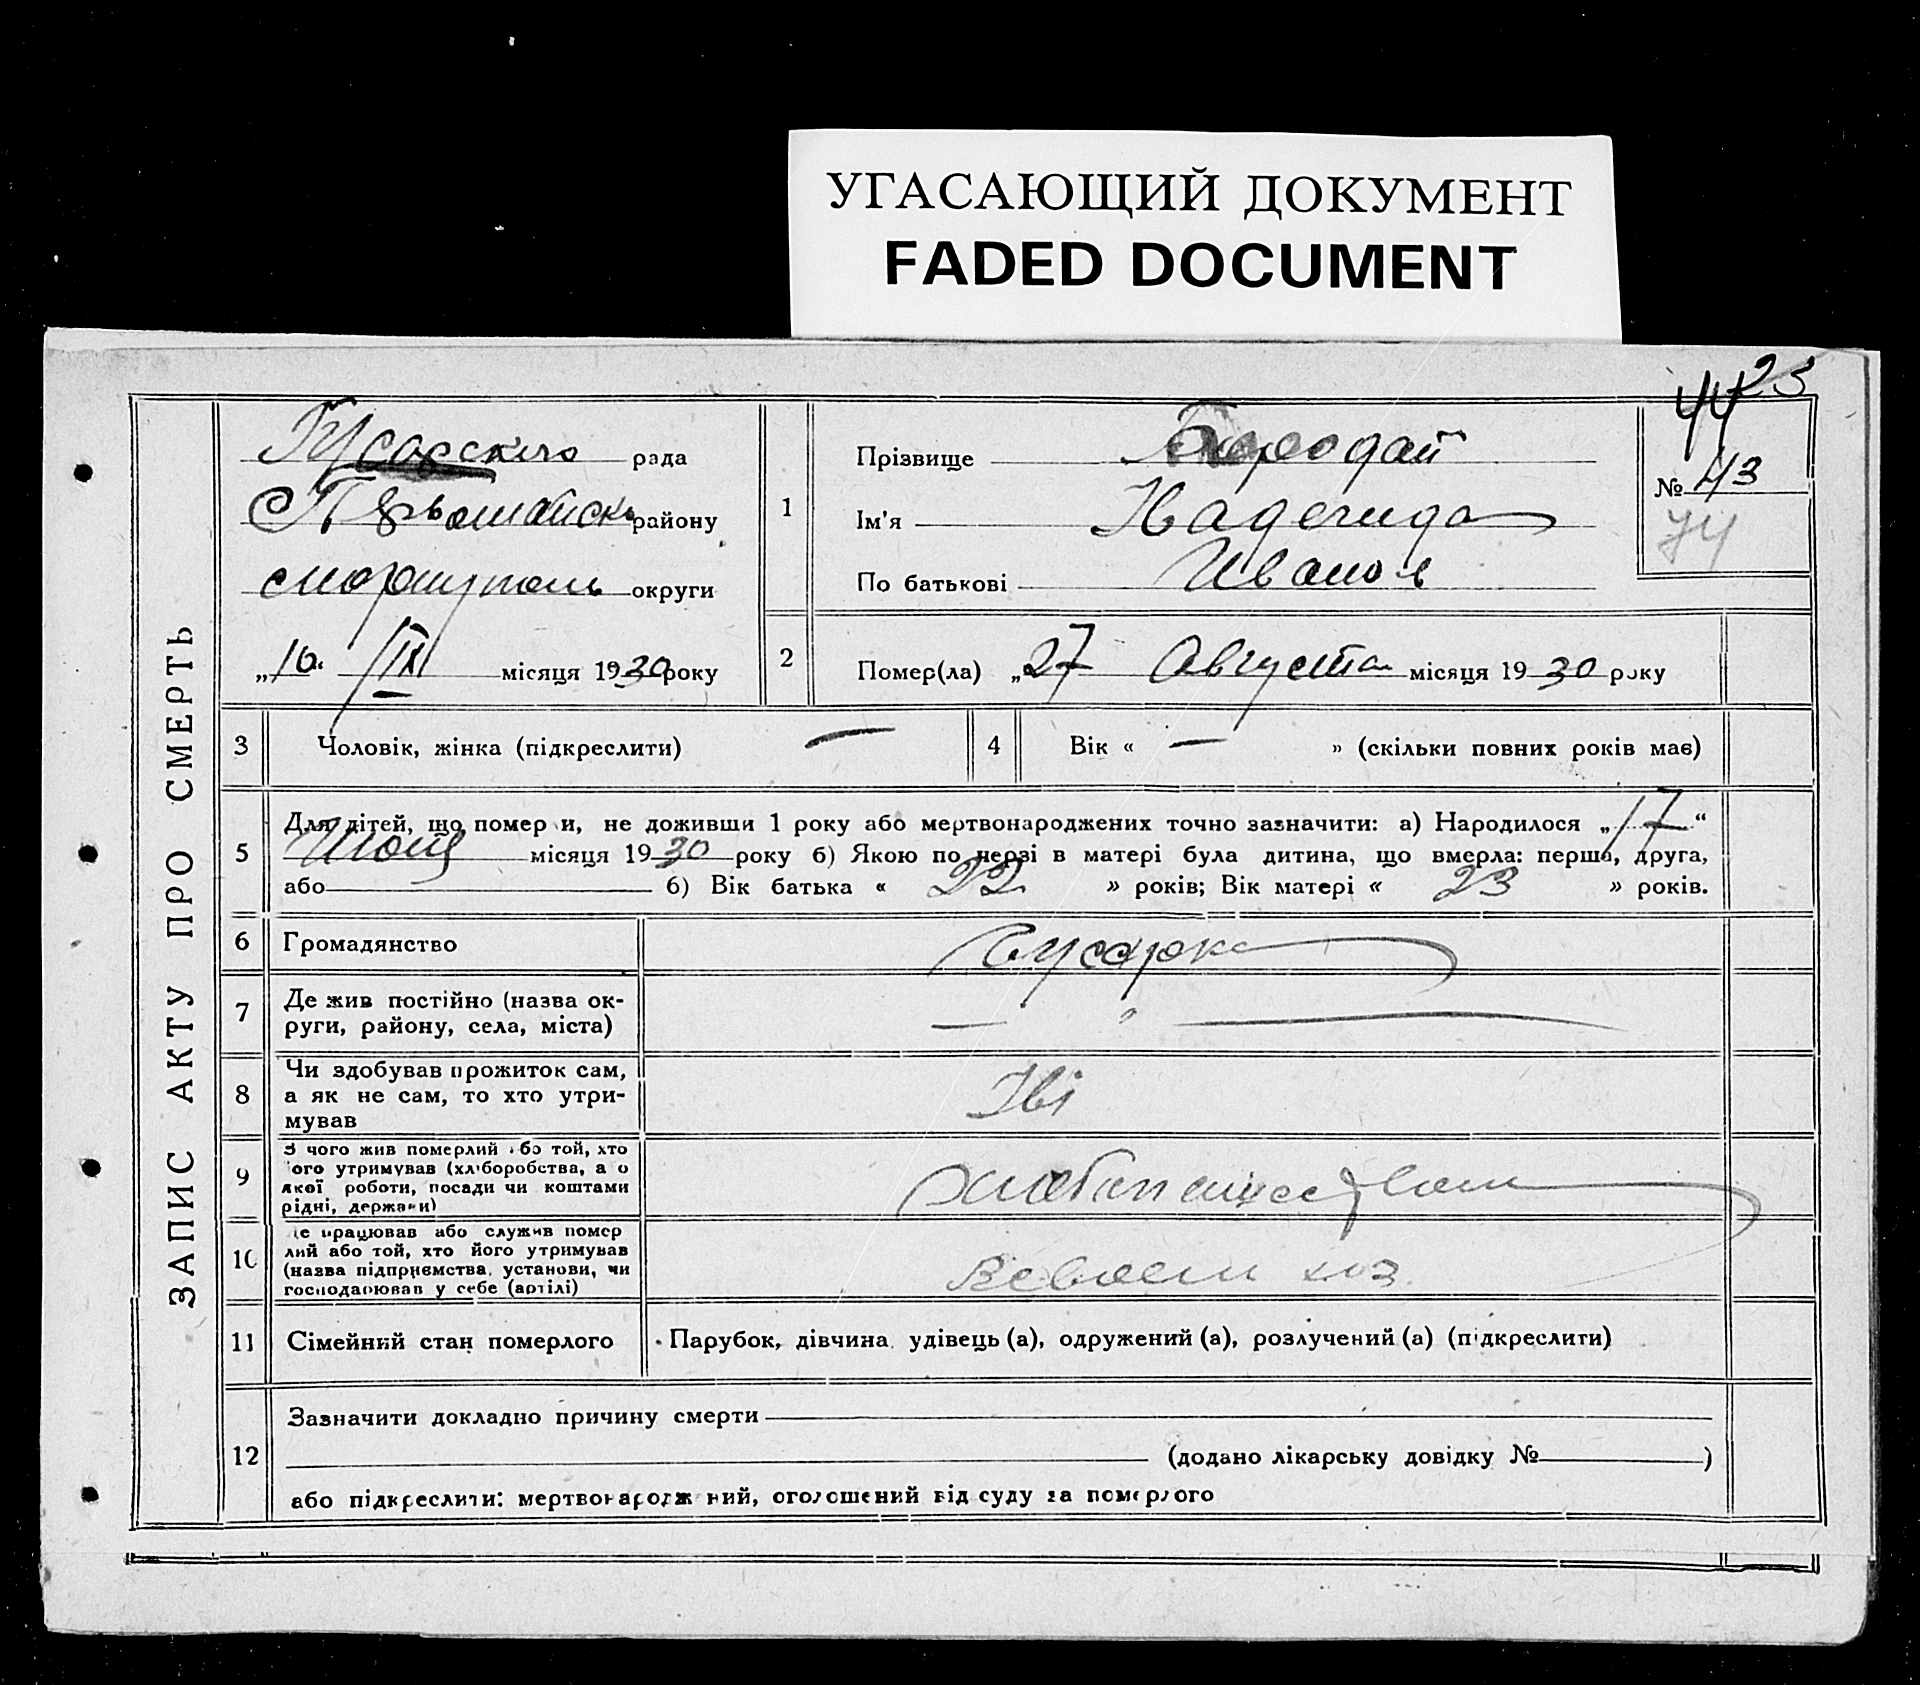 УГАСАЮЩИЙ ДОКУМЕНТ
FADED DOCUMENT
4423
ЗАПИС АКТУ ПРО СМЕРТЬ
рада
району
округи
„10“ IX місяця 1930 року
1
Прізвище Бородай
Ім'я
По батькові Иванов
№ 43
74
2
Помер(ла) „27 Августа місяця 1930 року
3
Чоловік, жінка (підкреслити) —
4
Вік « — » (скільки повних років має)
5
Для дітей, що померли, не доживши 1 року або мертвонароджених точно зазначити: а) Народилося „17“
місяця 1930 року б) Якою по черзі в матері була дитина, що вмерла: перша, друга,
або б) Вік батька « 22 » років; Вік матері « 23 » років.
6
Громадянство
7
Де жив постійно (назва ок-
руги, району, села, міста)
— „ —
8
Чи здобував прожиток сам,
а як не сам, то хто утри-
мував
9
З чого жив померлий або той, хто
його утримував (хліборобства, або
якої роботи, посади чи коштами
рідні, держави)
10
Де працював або служив помер
лий або той, хто його утримував
(назва підприємства, установи, чи
господарював у себе (артілі)
хоз.
11
Сімейний стан померлого
Парубок, дівчина, удівець (а), одружений (а), розлучений (а) (підкреслити)
12
Зазначити докладно причину смерти
(додано лікарську довідку № )
або підкреслити: мертвонароджений, оголошений від суду за померлого